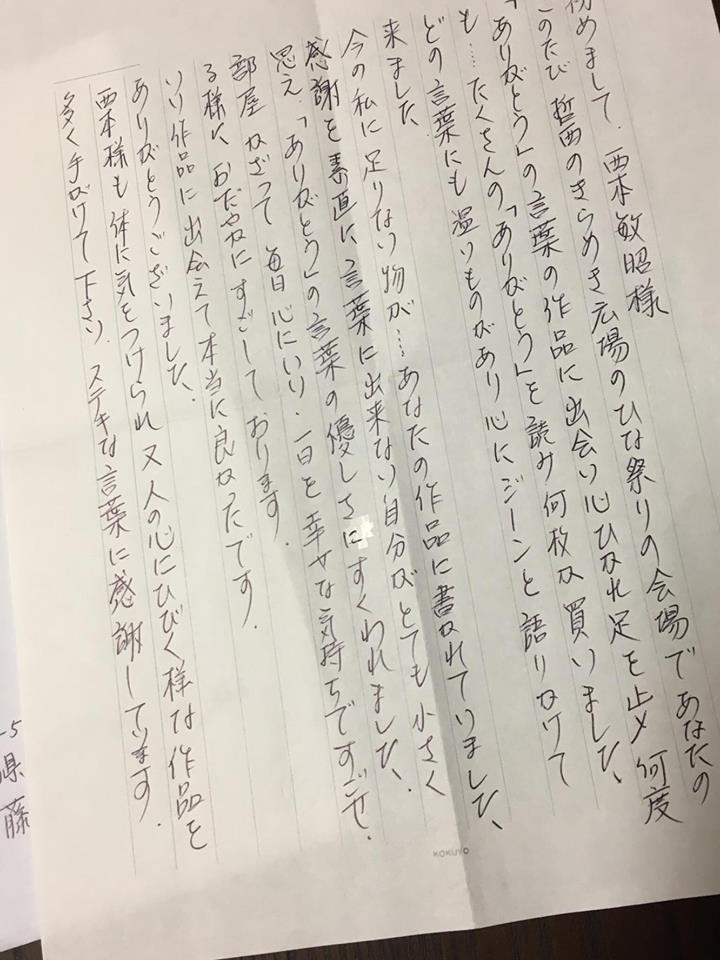 初めまして、西本敏昭様
このたび 哲西のきらめき広場のひな祭りの会場であなたの
「ありがとう」の言葉の作品に出会い心ひかれ足を止め 何度
も……たくさんの「ありがとう」を読み何枚か買いました、
どの言葉にも温いものがあり心にジーンと語りかけて
来ました、
今の私に足りない物が…あなたの作品に書かれていました、
感謝を素直に言葉に出来ない自分がとても小さく
思え、「ありがとう」の言葉の優しさにすくわれました、
部屋 かざって 毎日 心にいい・一日を幸せな気持ちですごせ.
る様に、おだやかにすごして おります.
いい作品に出会えて本当に良かったです.
ありがとうございました、
西本様も体に気をつけられ又人の心にひびく様な作品を
多く手がけて下さい、ステキな言葉に感謝しています.
KOKUYO
-5
県
藤